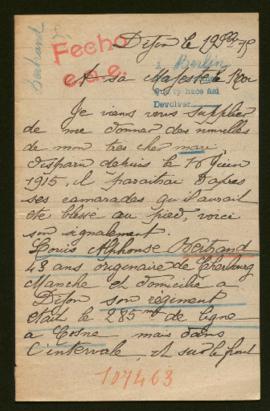 Bertrand
Fecho
e.o.e.
Dijon le 19
Berlin
Devolver
A sa Majesté le Roi
Je viens vous supplier
de me donner des nouvelles
de mon très cher mari,
disparu depuis le 16 juin
1915, il paraitrai d'apres
ses camarades qu'il aurait
ete blesse au pied, voici
son signalement.
Louis Alphonse Bertrand
43 ans originaire de Cherbourg
Manche et domicilie a
Dijon son regiment
etait le 285 me de ligne
a Cosne mais dans
l'intervale, et sur le front
107463